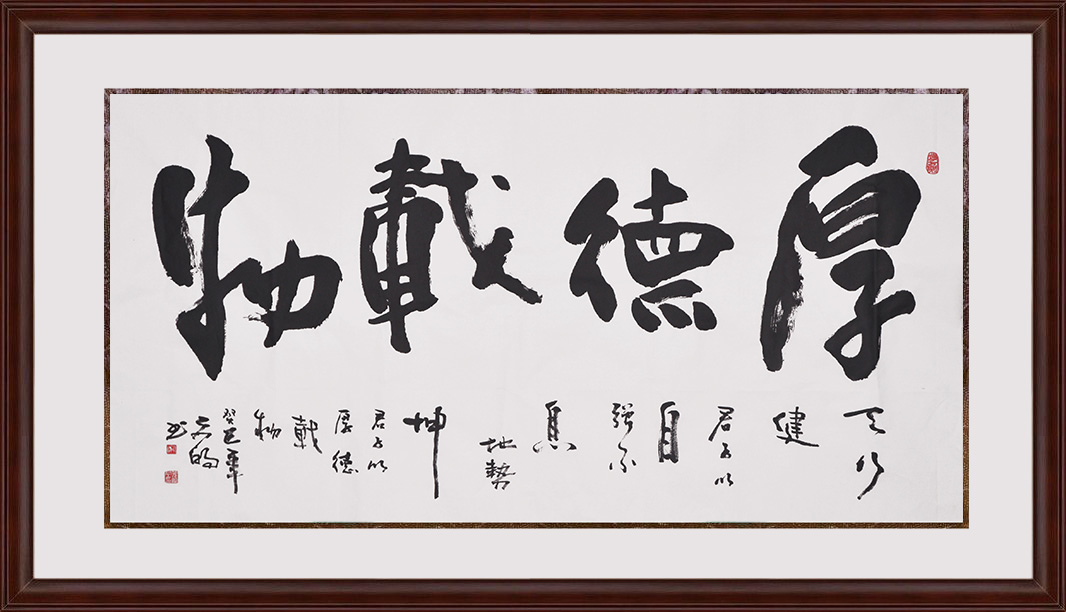 厚德載物
天行
健
君子以
自
強不
息
地勢
坤
君子以
厚德
載
物
癸巳年
书